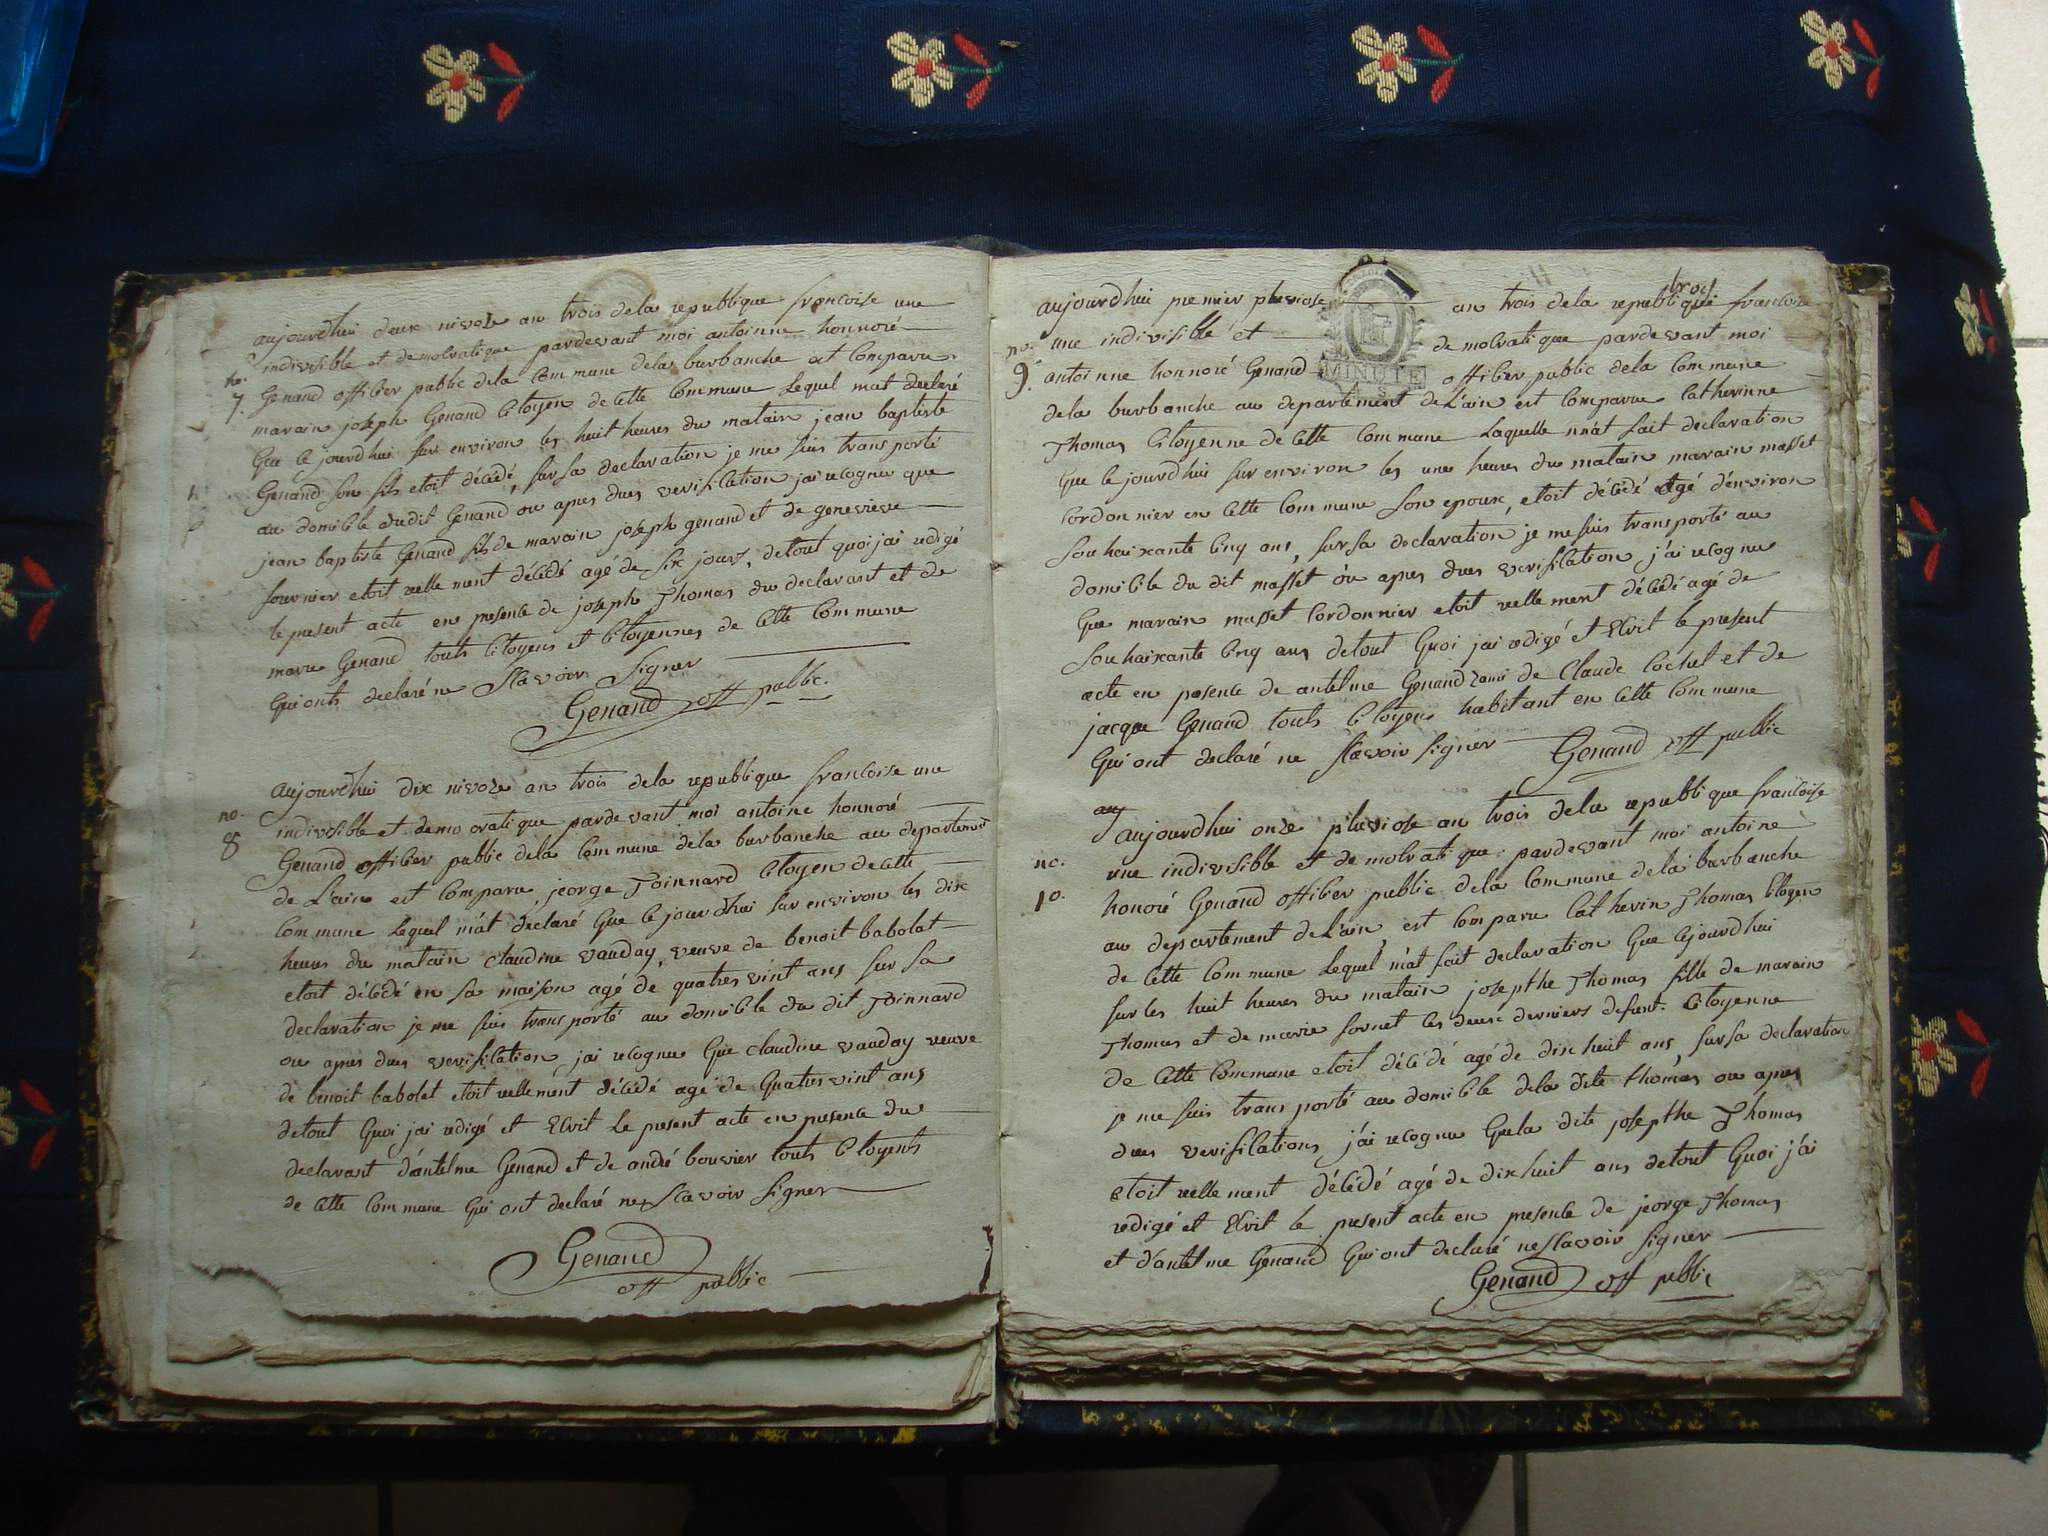 aujourdhui deux nivoze an trois dela republique francoise une
indivisible et democratique pardevant moi antoinne honnoré
no.
7. Genand officier public dela commune dela burbanche est comparu
marain joseph Genand citoyen de cette commune lequel mat declaré
que ce jourdhui sur environ les huit heures du matain jean baptiste
Genand son fils etoit décédé, sur sa declaration je me suis transporté
au domicile dudit Genand ou apres dues verification jai recognu que
jean baptiste Genand fils de marain joseph genand et de genevieve
fournier etoit reellement décédé agé de six jours, detout quoi jai redigé
le present acte en presence de joseph Thomas du declarant et de
marie Genand touts citoyens et citoyennes de cette commune
qui onts declaré ne scavoir signer
Genand off public.
aujourdhui dix nivoze an trois dela republique francoise une
no.
8 indivisible et democratique pardevant moi antoine honnoré
Genand officier public dela commune dela burbanche au departement
de L'ain est comparu, jeorge Joinnard citoyen de cette
commune lequel m'at declaré que ce jourdhui sur environ les dix
heures du matain claudine vauday, veuve de benoit babolat
etoit décédé en sa maison agé de quatres vint ans sur sa
declaration je me suis transporté au domicile du dit Joinnard
ou apres dues verification, jai recognu que claudine vauday veuve
de benoit babolet etoit reellement décédé agé de quatres vint ans
detout quoi jai redigé et Ecrit le present acte en presence du
declarant d'antelme Genand et de andré bouvier touts citoyents
de cette commune qui ont declaré ne scavoir signer
Genand
off public
trois
aujourdhui premier pluviose an trois dela republique francoise
no. une indivisible et democratique pardevant moi
9. antoinne honnoré Genand officier public dela commune
MINUTE
dela burbanche au departement de L'ain est comparue catherinne
Thomas citoyenne de cette commune laquelle m'at fait declaration
que ce jourdhui sur environ les une heures du matain marain masset
cordonnier en cette commune son epoux, etoit décédé agé d'environ
souhaixante cinq ans, sur sa declaration je me suis transporté au
domicile du dit masset òu apres dues verification j'ai recognu
que marain masset cordonnier etoit reellement décédé agé de
souhaixante cinq ans detout quoi jai redigé et Ecrit le present
acte en presence de antelme Genand de Claude Cochet et de
jacque Genand touts citoyens habitant en cette commune
qui ont declaré ne scavoir signer Genand off public
au
aujourdhui onze pluviose an trois dela republique francoise
no. une indivisible et democratique pardevant moi antoine
10. honoré Genand officier public dela commune dela burbanche
au departement de L'ain, est comparu Catherin Thomas citoyen
de cette commune lequel m'at fait declaration que cejourdhui
sur les huit heures du matain josepthe Thomas fille de marain
Thomas et de marie fornet les deux derniers defunt. citoyenne
de cette commune etoit décédé agé de dixhuit ans, sur sa declaration
je me suis transporté au domicile dela dite thomas ou apres
dues verifications, j'ai recognu quela dite josepthe Thomas
etoit reellement décédé agé de dixhuit ans detout quoi j'ai
redigé et Ecrit le present acte en presence de jeorge Thomas
et d'antelme Genand qui ont declaré ne scavoir signer
Genand off public